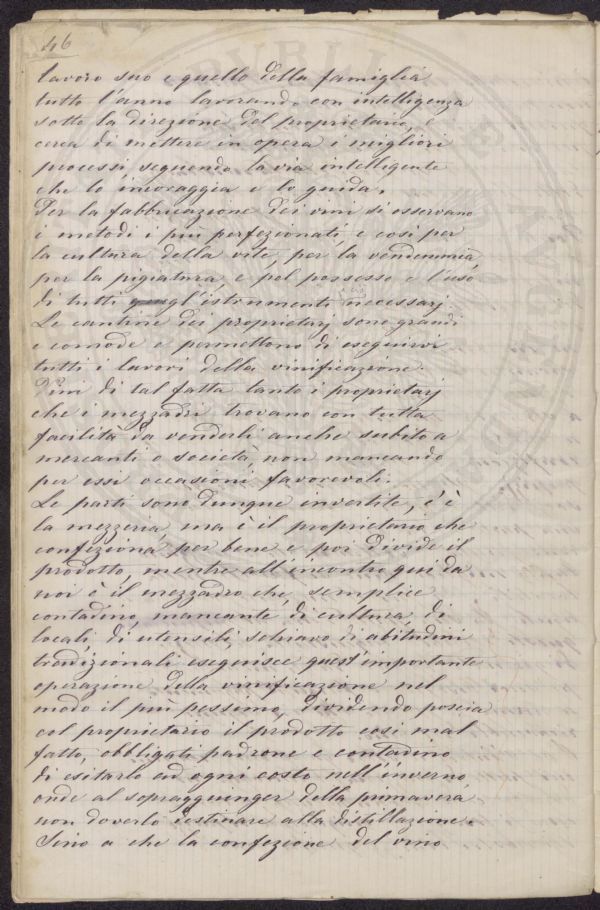 46
lavoro suo e quello della famiglia
tutto l'anno lavorando con intelligenza
sotto la direzione del proprietario, e
cerca di mettere in opera i migliori
processi seguendo la via intelligente
che lo incoraggia e lo guida.
Per la fabbricazione dei vini si osservano
i metodi i più perfezionati, e così per
la cultura della vite, per la vendemmia,
per la pigiatura, e pel possesso e l'uso
di tutti gl'istrumenti necessarj.
Le cantine dei proprietarj sono grandi
e comode e permettono di eseguirvi
tutti i lavori della vinificazione.
Vini di tal fatta tanto i proprietarj
che i mezzadri trovano con tutta
facilità da venderli anche subito a
mercanti o società, non mancando
per essi occasioni favorevoli.
Le parti sono dunque invertite, c'è
la mezzeria, ma è il proprietario che
confeziona per bene e poi divide il
prodotto, mentre all'incontro qui da
noi è il mezzadro che, semplice
contadino, mancante di cultura, di
locali, di utensili, schiavo di abitudini
tradizionali eseguisce quest'importante
operazione della vinificazione nel
modo il più pessimo, dividendo poscia
col proprietario il prodotto così mal
fatto, obbligati padrone e contadino
di esitarlo ad ogni costo nell'inverno,
onde al sopraggiunger della primavera
non doverlo destinare alla distillazione.
Sino a che la confezione del vino